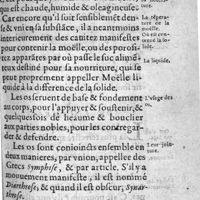 qui est chaude, humide & oleagineuse.
Car encore qu'il soit sensiblemét den-
se & vni en sa substãce, il a neantmoins
interieurement des cauitez manifestes
pour contenir la moëlle, ou des porosi-
tez apparẽtes par où passe le suc alimé-
teux destiné pour sa nourriture, qui se
peut proprement appeler Moëlle li-
quide à la difference de la solide.
Les os seruent de base & fondement
au corps, pour l'appuyer & soustenir, &
quelquesfois de heaume & bouclier
aux parties nobles, pour les contregar-
der & defendre.
Les os sont conjoincts ensemble en
deux manieres, par vnion, appellee des
Grecs Symphise, & par article. S'il y a
mouuement manifeste, il est nommé
Diarthrose, & quand il est obscur, Synar-
throse.
nourriture.
La separa-
ture de la
moëlle.
Où est con-
tenuë la so-
lide.
La liquide.
L'vsage des
os.
Leur join-
ture.